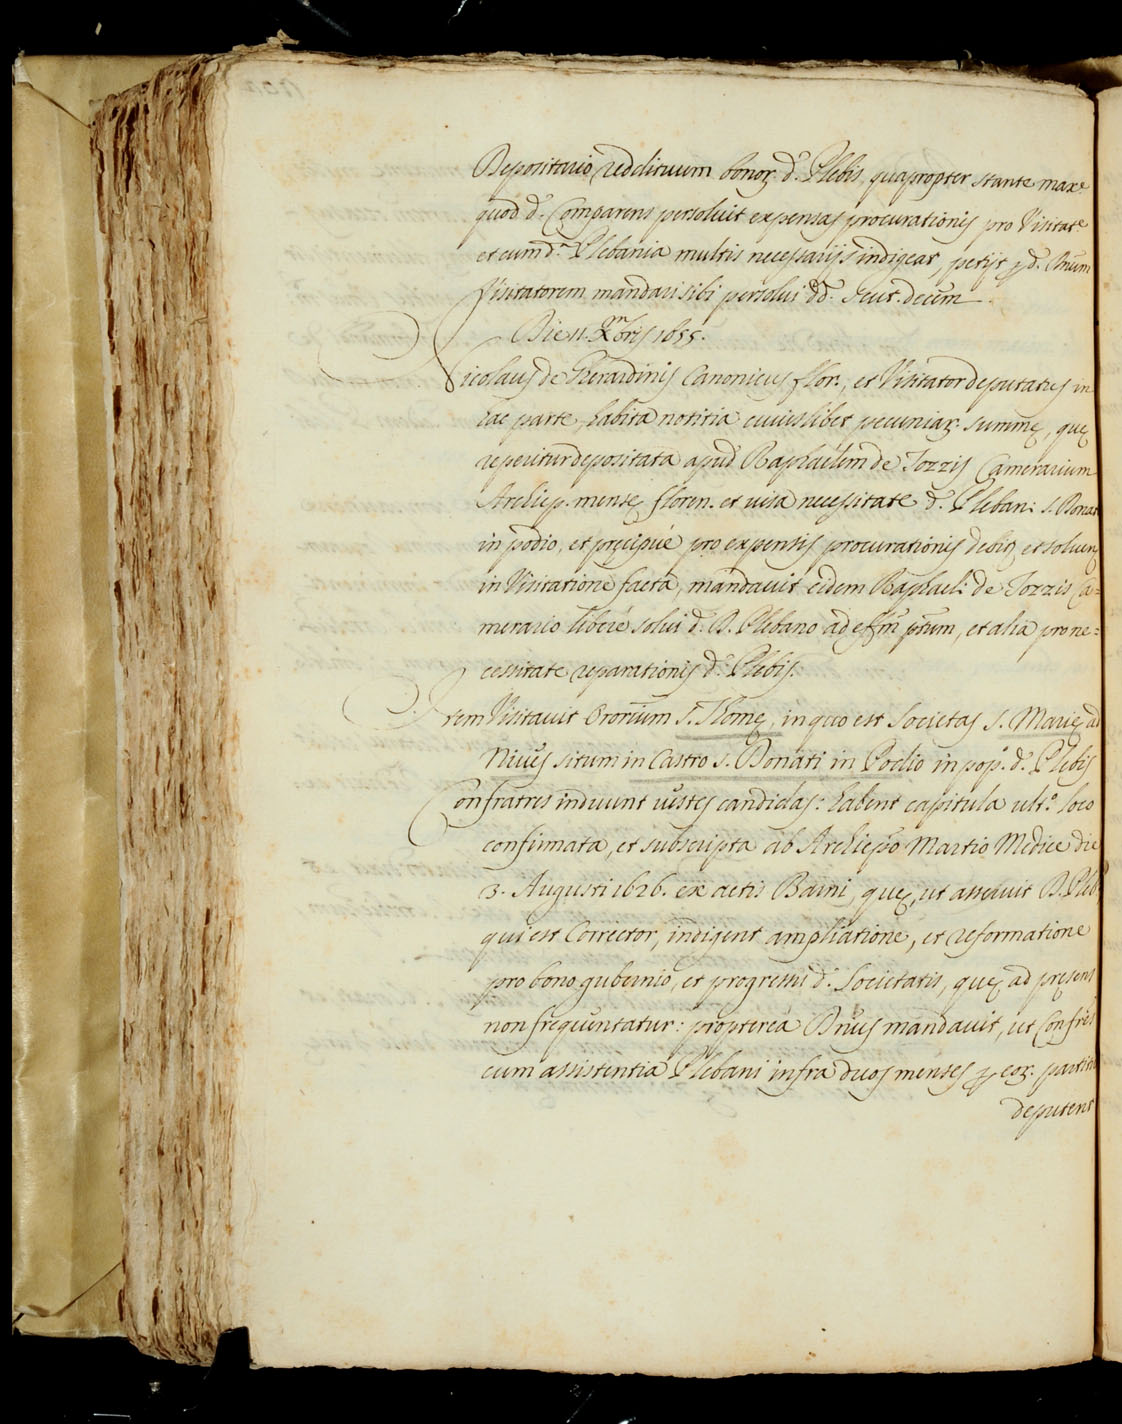 Depositario reddituum bonor. d.ᵉ Plebis, quapropter stante max.ᵉ
quod d. Comparens persoluit expensas procurationis pro Visitat.ᵉ
et cum d.ᵃ Plebania multis necessarijs indigeat, petijt p d. Dnum
Visitatorem mandari sibi persolui dd. scut. decem
Die 11. Xmbris 1655.
Nicolaus de Gherardinis Canonicus flor., et Visitator deputatus in
hac parte, habita notitia cuiuslibet pecuniar. summę, quę
reperitur depositata apud Raphaelem de Tozzis Camerarium
Archiep. mensę floren. et uisa necessitate d. Plebani S. Donati
in podio, et pręcipuè pro expensis procurationis debit. et solum
in Visitatione facta, mandauit eidem Raphaeli de Tozzis Ca=
merario liberè solui d. D. Plebano ad effm ptum, et alia pro ne=
cessitate reparationis d.ᵉ Plebis.
Item Visitauit Oratorium S. Thomę, in quo est Societas S. Marię ad
Niues situm in Castro S. Donati in Podio in pop.º d.ᵉ Plebis
Confratres induunt uestes candidas: habent capitula ult.º loco
confirmata, et subscripta ab Archiepo Martio Medice die
3. Augusti 1626. ex actis Barni, quę, ut asseruit D. Pleb.
qui est Corrector, indigent ampliatione, et reformatione
pro bono gubernio, et progressu d. Societatis, quę ad pręsens
non frequentatur: propterea Dnus mandauit, ut Confres
cum assistentia Plebani infra duos menses p eor. partitu
deputent